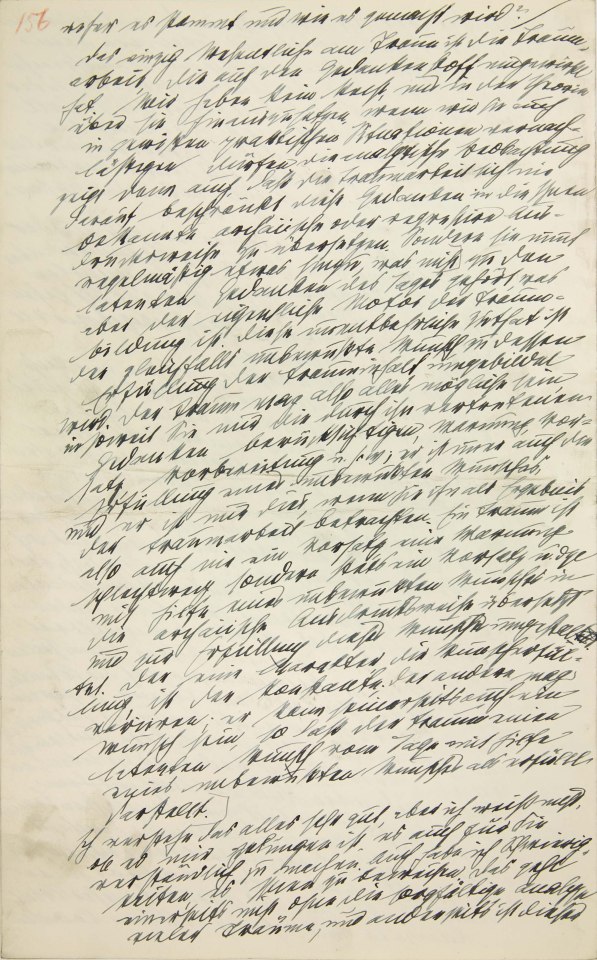 156
woher es stammt und wie es gemacht wird?
Das einzig Wesentliche am Traum ist die Traum-
arbeit, die auf den Gedankenstoff eingewirkt
hat. Wir haben kein Recht, uns in der Theorie
über sie hinwegzusetzen, wenn wir sie auch
in gewissen praktischen Situationen vernach-
lässigen dürfen. Die analytische Beobachtung
zeigt denn auch, daß die Traumarbeit sich nie
darauf beschränkt, diese Gedanken in die Ihnen
bekannte archaische oder regressive Aus-
drucksweise zu übersetzen. Sondern sie nimmt
regelmäßig etwas hinzu, was nicht zu den
latenten Gedanken des Tages gehört, was
aber der eigentliche Motor der Traum-
bildung ist. Diese unentbehrliche Zuthat ist
der gleichfalls unbewußte Wunsch, zu dessen
Erfüllung der Trauminhalt umgebildet
wird. Der Traum mag also alles mögliche sein,
insoweit Sie nur die durch ihn vertretenen
Gedanken berücksichtigen, Warnung, Vor-
satz, Vorbereitung u.s.w; er ist immer auch die
Erfüllung eines unbewußten Wunsches,
und er ist nur dies, wenn Sie ihn als Ergebnis
der Traumarbeit betrachten. Ein Traum ist
also auch nie ein Vorsatz, eine Warnung
schlechtweg, sondern stets ein Vorsatz udgl
mit Hilfe eines unbewußten Wunsches in
die archaische Ausdrucksweise übersetzt
und zur Erfüllung dieses Wunsches umgestal-
tet. Der eine Charakter, die Wunscherfül-
lung ist der konstante, der andere mag
variiren; er kann seinerseits auch ein
Wunsch sein, so daß der Traum einen
latenten Wunsch vom Tage mit Hilfe
eines unbewußten Wunsches als erfüllt
darstellt.
Ich verstehe das alles sehr gut, aber ich weiß nicht,
ob es mir gelungen ist, es auch für Sie
verständlich zu machen. Auch habe ich Schwierig-
keiten, es Ihnen zu beweisen. Das geht
einerseits nicht ohne die sorgfältige Analyse
vieler Träume, und anderseits ist dieser